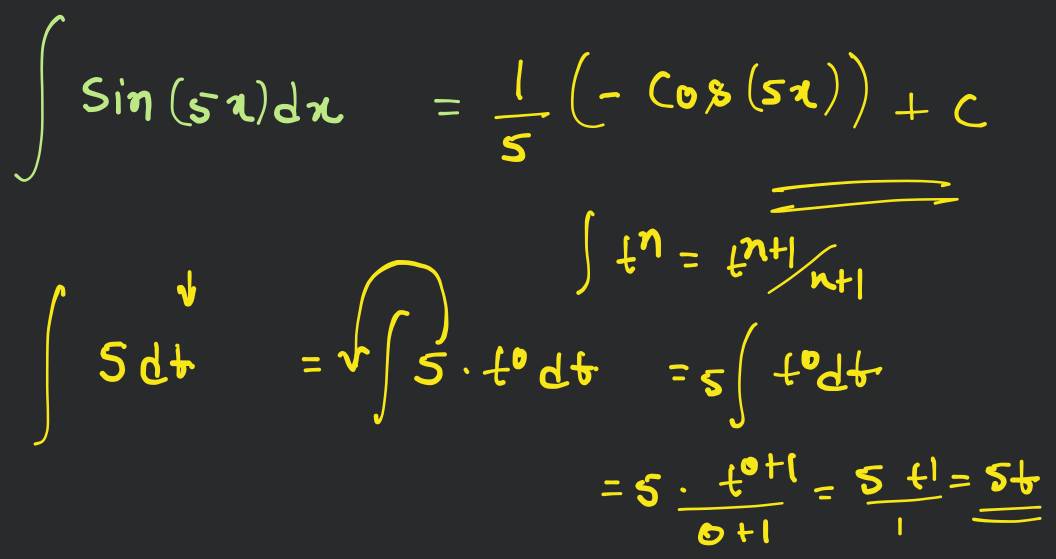 ∫ Sin (5x)dx = 1/5 (- Cos (5x)) + C
∫ t^n = t^(n+1)/n+1
∫ 5 dt = ∫ 5 . t^0 dt = 5 ∫ t^0 dt
= 5 . t^(0+1)/0+1 = 5 t^1/1 = 5t